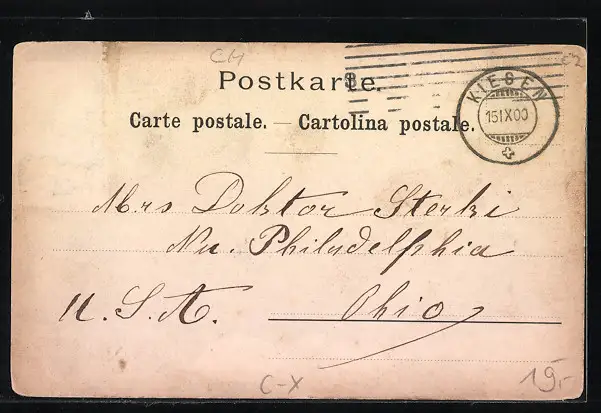 CH
C2
Postkarte.
KIESEN
15 IX 00
Carte postale. — Cartolina postale.
Mrs Doktor Sterki
Nu. Philadelphia
U. S. A. Ohio
C-X
19.-